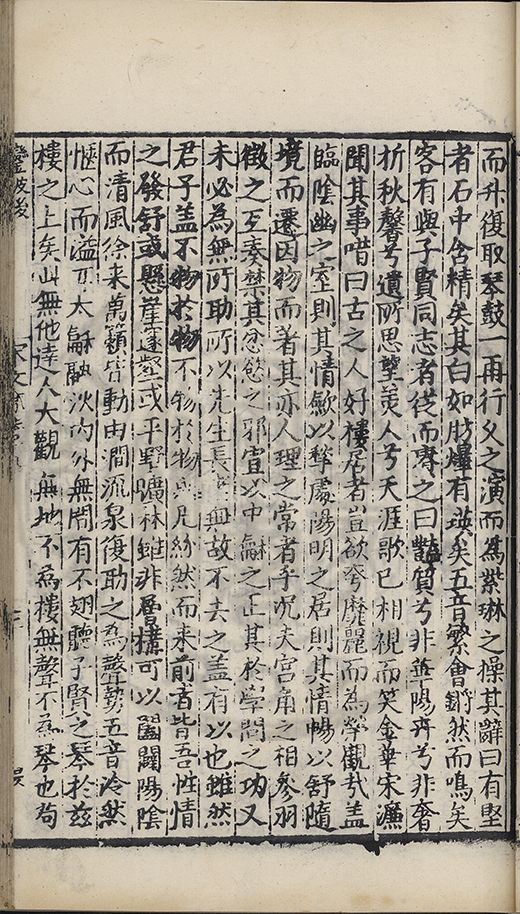 而升復取琴鼓一再行父之演而為紫琳之操其辭曰有堅
者石中含精矣其白如肪爆有瑛矣五音繁會鏘然而鳴矣
客有與子賢同志者從而賡之曰豔質兮非華陽卉兮非奢
折秋馨兮遺所思望美人兮天涯歌已相視而笑金華宋濂
聞其事喟曰古之人好樓居者豈欲夸靡麗而為榮觀哉蓋
臨陰幽之室則其情歛以鬱處陽明之居則其情暢以舒隨
境而遷因物而著其亦人理之常者乎况夫宮角之相參羽
徵之互奏禁其忿慾之邪宣以中龢之正其於學問之功又
未必為無所助所以先生長者無故不去之蓋有以也雖然
君子蓋不物於物不物於物則凡紛然而来前者皆吾性情
之發舒或懸崖邃壑或平野曠林雖非層搆可以闔闢陽陰
而清風徐来萬籟皆動由澗流泉復助之為聲勢五音泠然
愜心而溢耳太龢融淡内外無間有不翅聽子賢之琴於兹
樓之上矣此無他達人大觀無地不為樓無聲不為琴也苟
鑾坡後